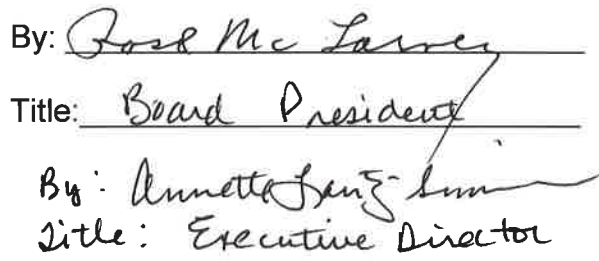 By: Rose Mc Larney
Title: Board President
By: Annette Lantz-Simmons
Title: Executive Director